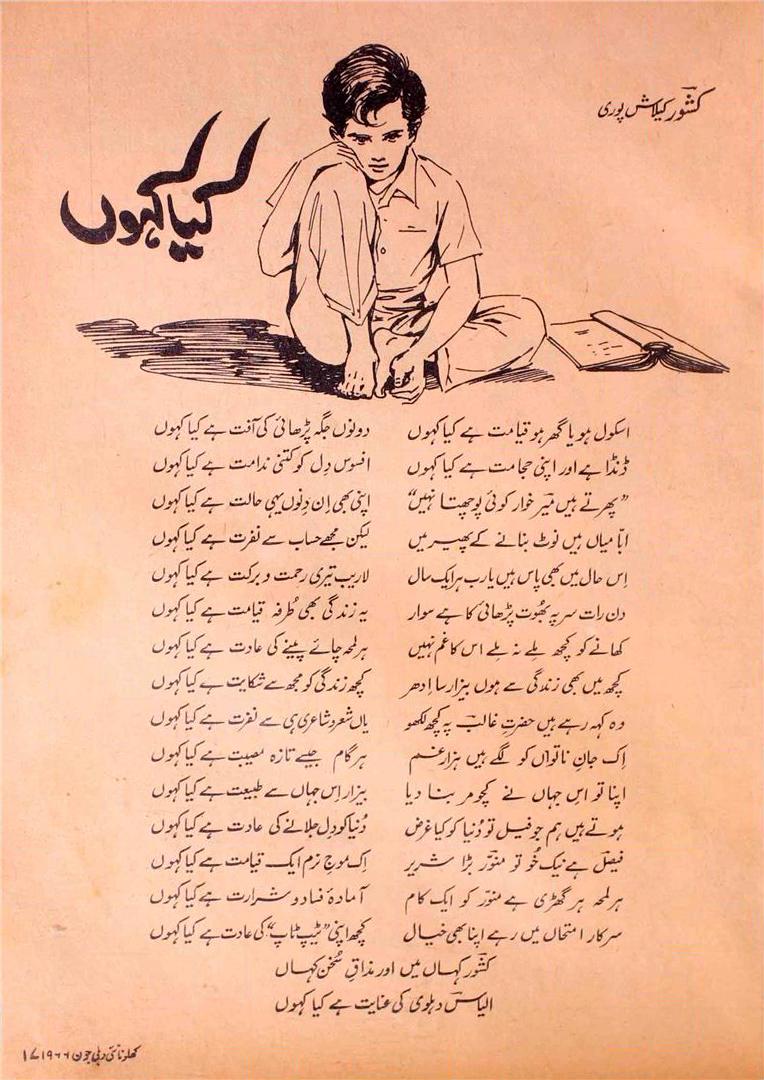 کشورؔ کیلاش پوری
کیا کہوں
اسکول ہو یا گھر ہو قیامت ہے کیا کہوں دونوں جگہ پڑھائی کی آفت ہے کیا کہوں
ڈنڈا ہے اور اپنی حجامت ہے کیا کہوں افسوس دِل کو کتنی ندامت ہے کیا کہوں
”پھرتے ہیں میرؔ خوار کوئی پوچھتا نہیں“ اپنی بھی اِن دِنوں یہی حالت ہے کیا کہوں
ابّا میاں ہیں نوٹ بنانے کے پھیر میں لیکن مجھے حساب سے نفرت ہے کیا کہوں
اِس حال میں بھی پاس ہیں یارب ہر ایک سال لاریب تیری رحمت و برکت ہے کیا کہوں
دن رات سر پہ بھُوت پڑھائی کا ہے سوار یہ زندگی بھی طُرفہ قیامت ہے کیا کہوں
کھانے کو کچھ مِلے نہ مِلے اس کا غم نہیں ہر لمحہ چائے پینے کی عادت ہے کیا کہوں
کچھ میں بھی زندگی سے ہوں بیزار سا اِدھر کچھ زندگی کو مجھ سے شکایت ہے کیا کہوں
وہ کہہ رہے ہیں حضرتِ غالبؔ پہ کچھ لکھو یاں شعر و شاعری ہی سے نفرت ہے کیا کہوں
اِک جانِ ناتواں کو لگے ہیں ہزار غم ہر گام جیسے تازہ مصیبت ہے کیا کہوں
اپنا تو اس جہاں نے کچومر بنا دیا بیزار اِس جہاں سے طبیعت ہے کیا کہوں
ہوتے ہیں ہم جو فیل تو دُنیا کو کیا غرض دُنیا کو دِل جلانے کی عادت ہے کیا کہوں
فیصلؔ ہے نیک خُو تو منوّرؔ بڑا شریر اِک موجِ نرم ایک قیامت ہے کیا کہوں
ہر لمحہ ہر گھڑی ہے منوّرؔ کو ایک کام آمادۂ فساد و شرارت ہے کیا کہوں
سرکار امتحاں میں رہے اپنا بھی خیال کچھ اپنی ”ٹیپ ٹاپ“ کی عادت ہے کیا کہوں
کشورؔ کہاں میں اور مذاقِ سُخن کہاں
الیاسؔ دہلوی کی عنایت ہے کیا کہوں
کھلونا نئی دہلی جون ۱۹۶۶ ۱۷